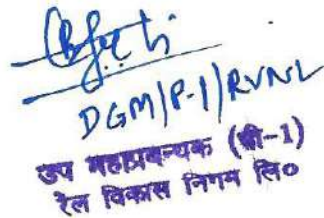 DGM/P-1/RVNL
उप महाप्रबन्धक (पी-1)
रेल विकास निगम लि०